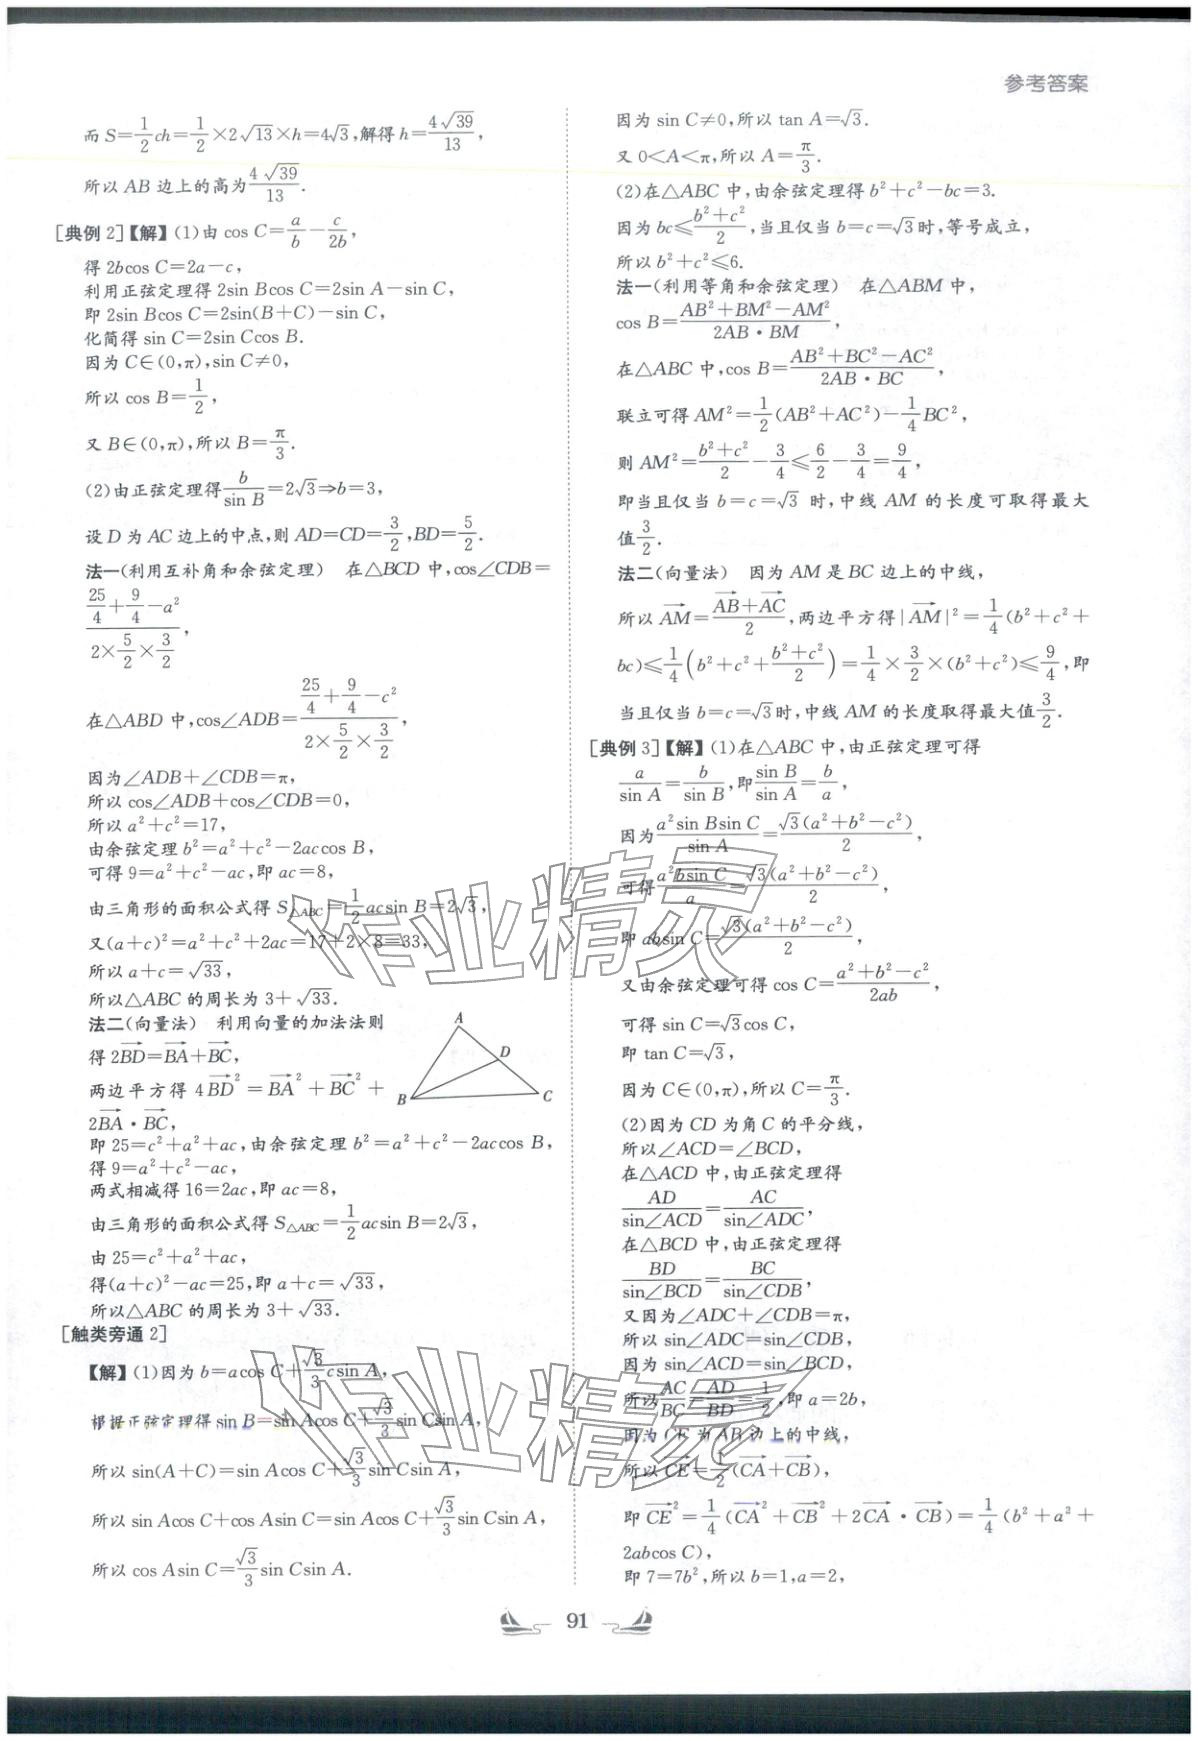 参考答案
而 S=\frac{1}{2}ch=\frac{1}{2}×2√13×h=4√3,解得h=\frac{4√39}{13},
所以 AB 边上的高为\frac{4√39}{13}.
[典例 2]【解】(1)由 cos C=\frac{a}{b}-\frac{c}{2b},
得 2bcos C=2a-c,
利用正弦定理得 2sin Bcos C=2sin A-sin C,
即 2sin Bcos C=2sin(B+C)-sin C,
化简得 sin C=2sin Ccos B.
因为 C∈(0,π),sin C≠0,
所以 cos B=\frac{1}{2},
又 B∈(0,π),所以 B=\frac{π}{3}.
(2)由正弦定理得\frac{b}{sin B}=2√3⇒b=3,
设 D 为 AC 边上的中点,则 AD=CD=\frac{3}{2},BD=\frac{5}{2}.
法一(利用互补角和余弦定理) 在△BCD 中,cos∠CDB=
\frac{\frac{25}{4}+\frac{9}{4}-a²}{2×\frac{5}{2}×\frac{3}{2}},
在△ABD 中,cos∠ADB=\frac{\frac{25}{4}+\frac{9}{4}-c²}{2×\frac{5}{2}×\frac{3}{2}},
因为∠ADB+∠CDB=π,
所以 cos∠ADB+cos∠CDB=0,
所以 a²+c²=17,
由余弦定理 b²=a²+c²-2accos B,
可得 9=a²+c²-ac,即 ac=8,
由三角形的面积公式得 S△ABC=\frac{1}{2}acsin B=2√3,
又(a+c)²=a²+c²+2ac=17+2×8=33,
所以 a+c=√33,
所以△ABC 的周长为 3+√33.
法二(向量法) 利用向量的加法法则
得 2\vec{BD}=\vec{BA}+\vec{BC},
两边平方得 4\vec{BD}²=\vec{BA}²+\vec{BC}²+
2\vec{BA}·\vec{BC},
A
D
B
C
即 25=c²+a²+ac,由余弦定理 b²=a²+c²-2accos B,
得 9=a²+c²-ac,
两式相减得 16=2ac,即 ac=8,
由三角形的面积公式得 S△ABC=\frac{1}{2}acsin B=2√3,
由 25=c²+a²+ac,
得(a+c)²-ac=25,即 a+c=√33,
所以△ABC 的周长为 3+√33.
[触类旁通 2]
【解】(1)因为 b=acos C+\frac{√3}{3}csin A,
根据正弦定理得 sin B=sin Acos C+\frac{√3}{3}sin Csin A,
所以 sin(A+C)=sin Acos C+\frac{√3}{3}sin Csin A,
所以 sin Acos C+cos Asin C=sin Acos C+\frac{√3}{3}sin Csin A,
所以 cos Asin C=\frac{√3}{3}sin Csin A.
因为 sin C≠0,所以 tan A=√3.
又 0<A<π,所以 A=\frac{π}{3}.
(2)在△ABC 中,由余弦定理得 b²+c²-bc=3.
因为 bc≤\frac{b²+c²}{2},当且仅当 b=c=√3时,等号成立,
所以 b²+c²≤6.
法一(利用等角和余弦定理) 在△ABM 中,
cos B=\frac{AB²+BM²-AM²}{2AB·BM},
在△ABC 中,cos B=\frac{AB²+BC²-AC²}{2AB·BC},
联立可得 AM²=\frac{1}{2}(AB²+AC²)-\frac{1}{4}BC²,
则 AM²=\frac{b²+c²}{2}-\frac{3}{4}≤\frac{6}{2}-\frac{3}{4}=\frac{9}{4},
即当且仅当 b=c=√3 时,中线 AM 的长度可取得最大
值\frac{3}{2}.
法二(向量法) 因为 AM 是 BC 边上的中线,
所以 \vec{AM}=\frac{\vec{AB}+\vec{AC}}{2},两边平方得|\vec{AM}|²=\frac{1}{4}(b²+c²+
bc)≤\frac{1}{4}(b²+c²+\frac{b²+c²}{2})=\frac{1}{4}×\frac{3}{2}×(b²+c²)≤\frac{9}{4},即
当且仅当 b=c=√3时,中线 AM 的长度取得最大值\frac{3}{2}.
[典例 3]【解】(1)在△ABC 中,由正弦定理可得
\frac{a}{sin A}=\frac{b}{sin B},即\frac{sin B}{sin A}=\frac{b}{a},
因为\frac{a²sin Bsin C}{sin A}=\frac{√3(a²+b²-c²)}{2},
可得\frac{a²bsin C}{a}=\frac{√3(a²+b²-c²)}{2},
即 absin C=\frac{√3(a²+b²-c²)}{2},
又由余弦定理可得 cos C=\frac{a²+b²-c²}{2ab},
可得 sin C=√3cos C,
即 tan C=√3,
因为 C∈(0,π),所以 C=\frac{π}{3}.
(2)因为 CD 为角 C 的平分线,
所以∠ACD=∠BCD,
在△ACD 中,由正弦定理得
\frac{AD}{sin∠ACD}=\frac{AC}{sin∠ADC},
在△BCD 中,由正弦定理得
\frac{BD}{sin∠BCD}=\frac{BC}{sin∠CDB},
又因为∠ADC+∠CDB=π,
所以 sin∠ADC=sin∠CDB,
因为 sin∠ACD=sin∠BCD,
所以\frac{AC}{BC}=\frac{AD}{BD}=\frac{1}{2},即 a=2b,
因为 CE 为 AB 边上的中线,
所以 \vec{CE}=\frac{1}{2}(\vec{CA}+\vec{CB}),
即 \vec{CE}²=\frac{1}{4}(\vec{CA}²+\vec{CB}²+2\vec{CA}·\vec{CB})=\frac{1}{4}(b²+a²+
2abcos C),
即 7=7b²,所以 b=1,a=2,
91
作业精灵
作业精灵